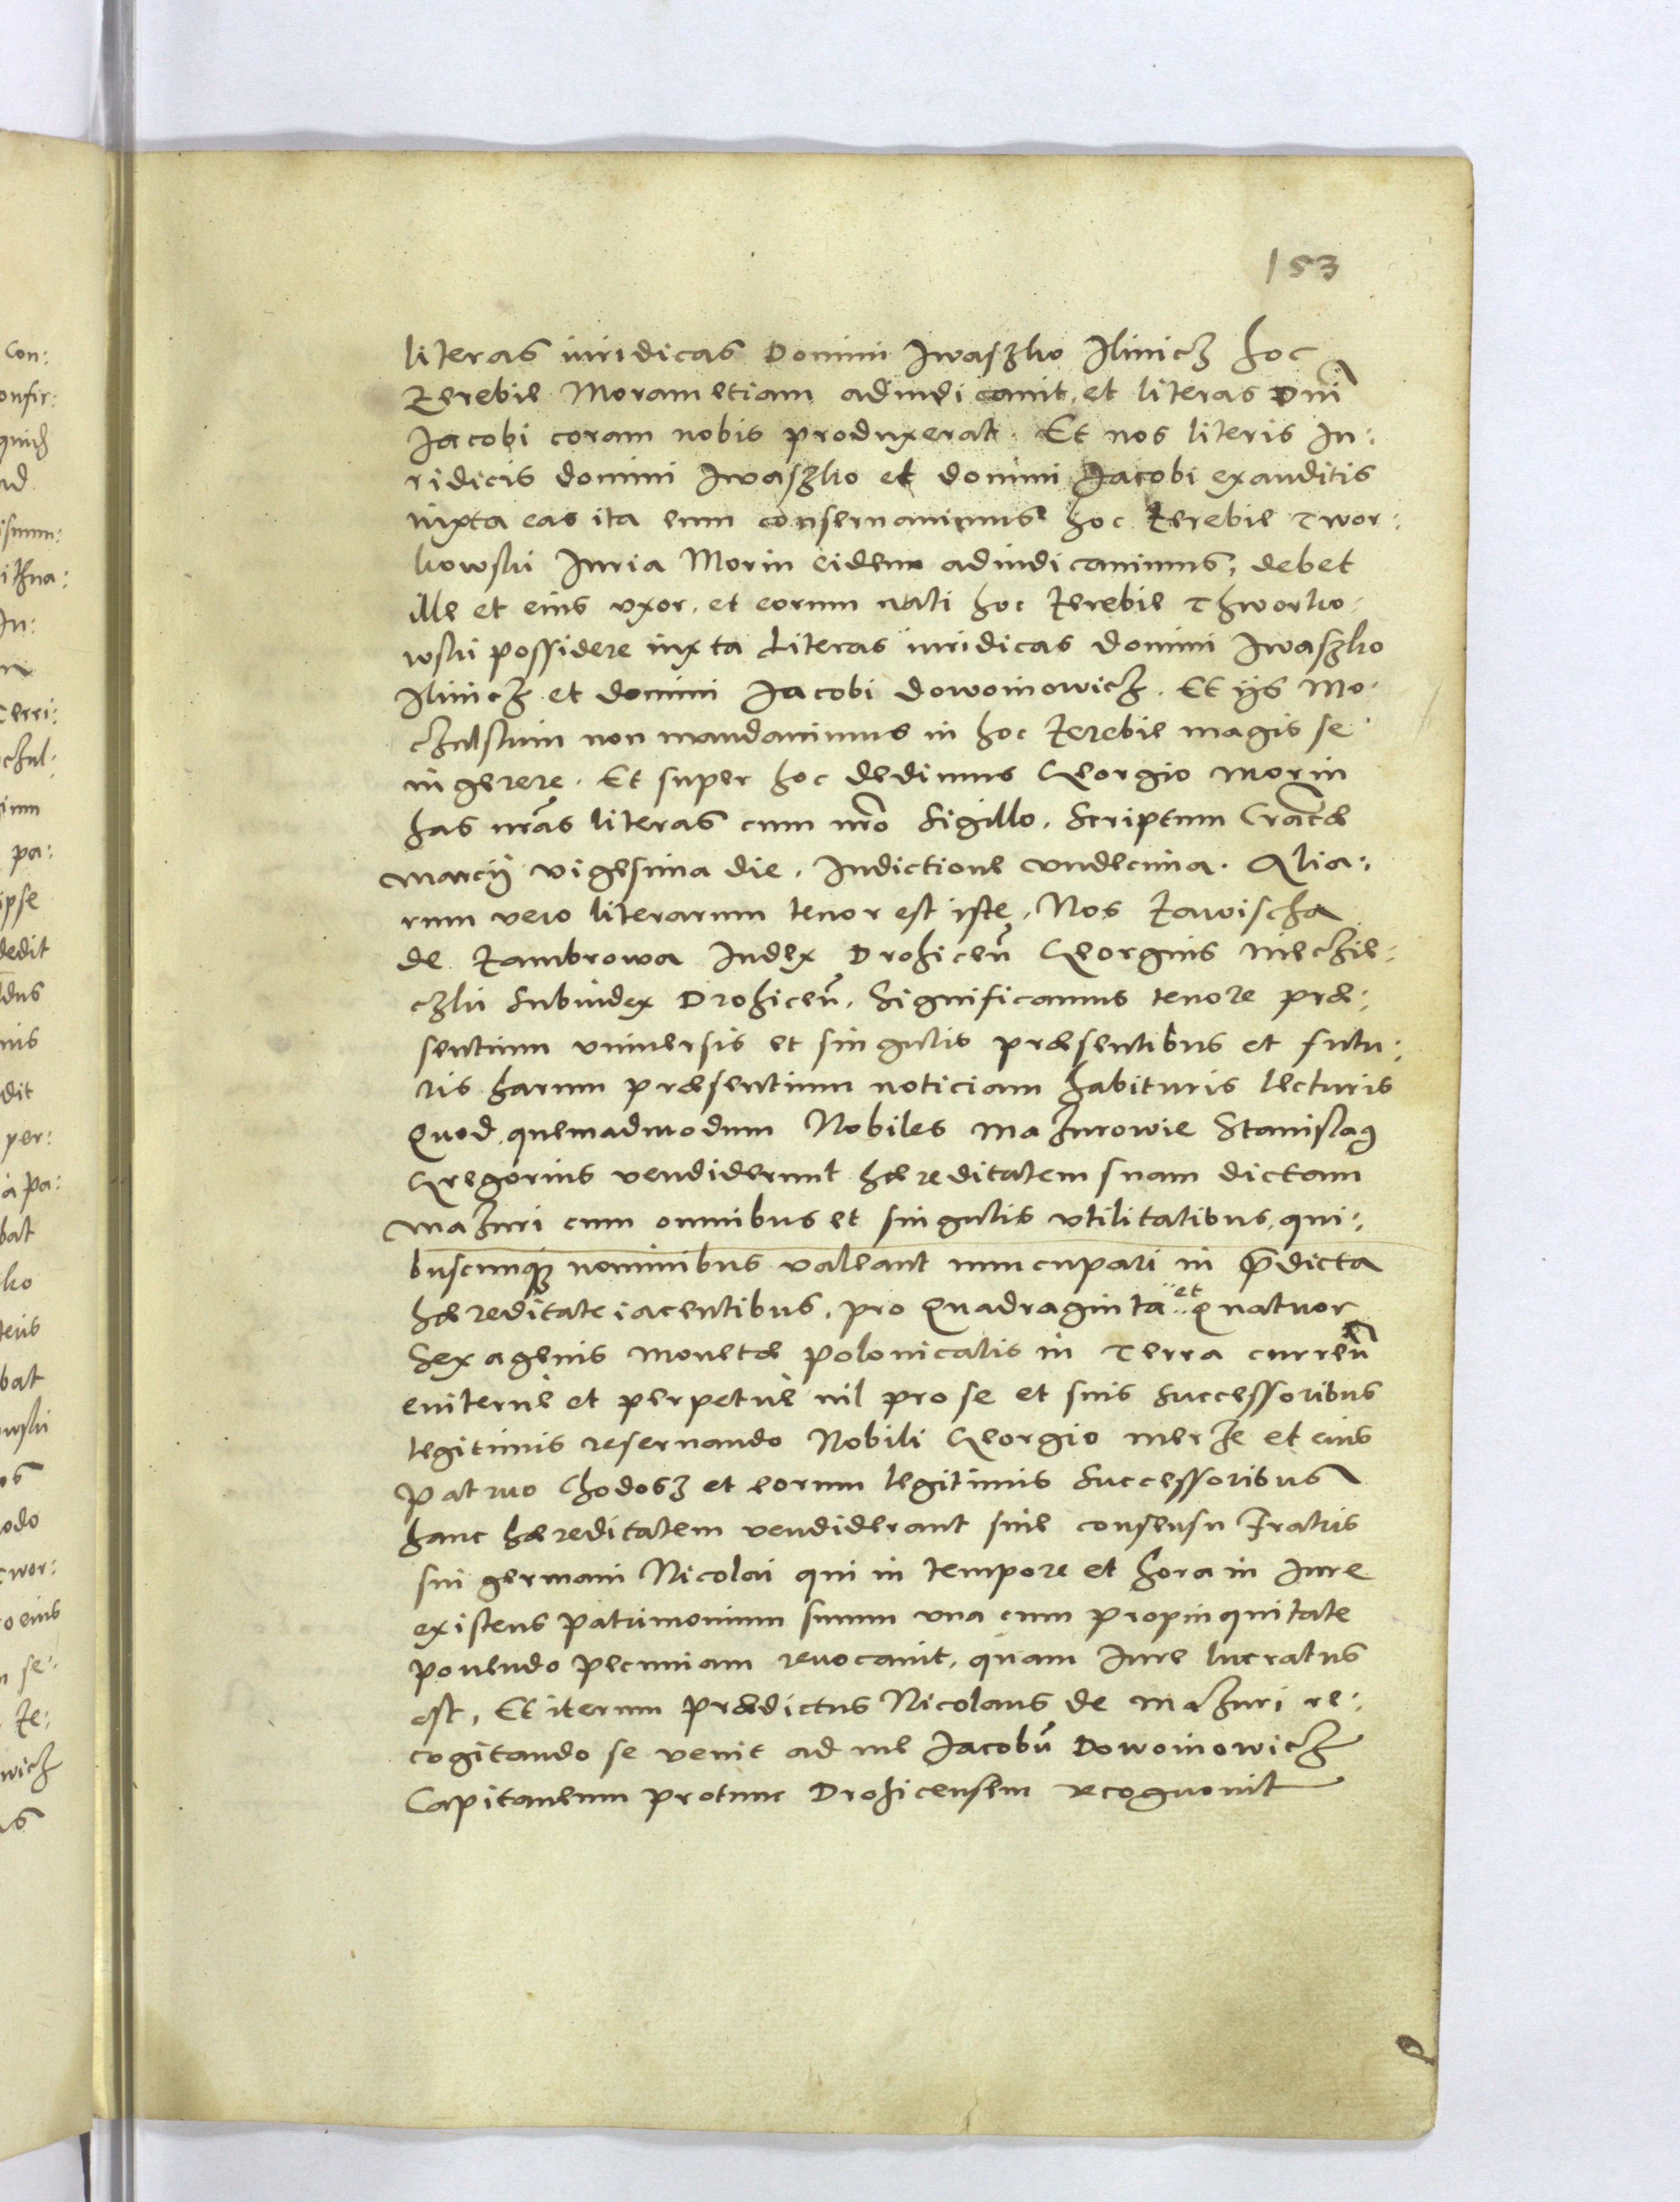 153
literas iuridicas Domini Iwaszko Ilinicz hoc
Zerebie Moram etiam adiudicauit, et literas Dni
Iacobi coram nobis produxerat. Et nos literis Iu:
ridicis domini Iwaszko et domini Iacobi exauditis
iuxta eas ita eum conseruauimus hoc Zerebie Twor:
kowski Iuria Morin eidem adiudicauimus, debet
ille et eius vxor, et eorum nati hoc Zerebie Thworko:
wski possidere iuxta Literas iuridicas domini Iwaszko
Ilinicz et domini Iacobi Dowoinowicz. Et ijs Mo:
czulskim non mandauimus in hoc Zerebie magis se
ingerere. Et super hoc dedimus Georgio Morin
has nras literas cum nro Sigillo. Scriptum
Marcij vigesima die, Indictione vndecima. Alia:
rum vero literarum tenor est iste, Nos Zawischa
de Zambrowa Iudex Drohiceñ Georgius Mieczie:
czki Subiudex Drohiceñ, Significamus tenore præ:
sentium vniuersis et singulis præsentibus et futu:
ris harum præsentium noticiam habituris lecturis
Quod quemadmodum Nobiles Mazurowie Stanislaus
Gregorius vendiderunt hæreditatem suam dictam
Mazuri cum omnibus et singulis vtilitatibus, qui:
buscunque nominibus valeant nuncupari in prædicta
hæreditate iacentibus, pro Quadraginta et quatuor
Sexagenis monetæ polonicalis in Terra curreñ
euiternè et perpetuè nil pro se et suis successoribus
legitimis reseruando Nobili Georgio Merze et eius
Patruo Chodosz et eorum legitimis successoribus
hanc hæreditatem vendiderant sine consensu Fratris
sui germani Nicolai qui in tempore et hora in Iure
existens patrimonium suum vna cum propinquitate
ponendo pecuniam reuocauit, quam Iure lucratus
est, Et iterum prædictus Nicolaus de Mazuri re:
cogitando se venit ad me Iacobũ Dowoinowicz
Capitaneum protunc Drohicensem recognouit